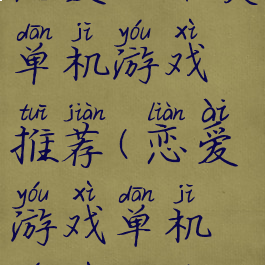 dān jī yóu xì
单机游戏
tuī jiàn liàn ài
推荐(恋爱
yóu xì dān jī
游戏单机